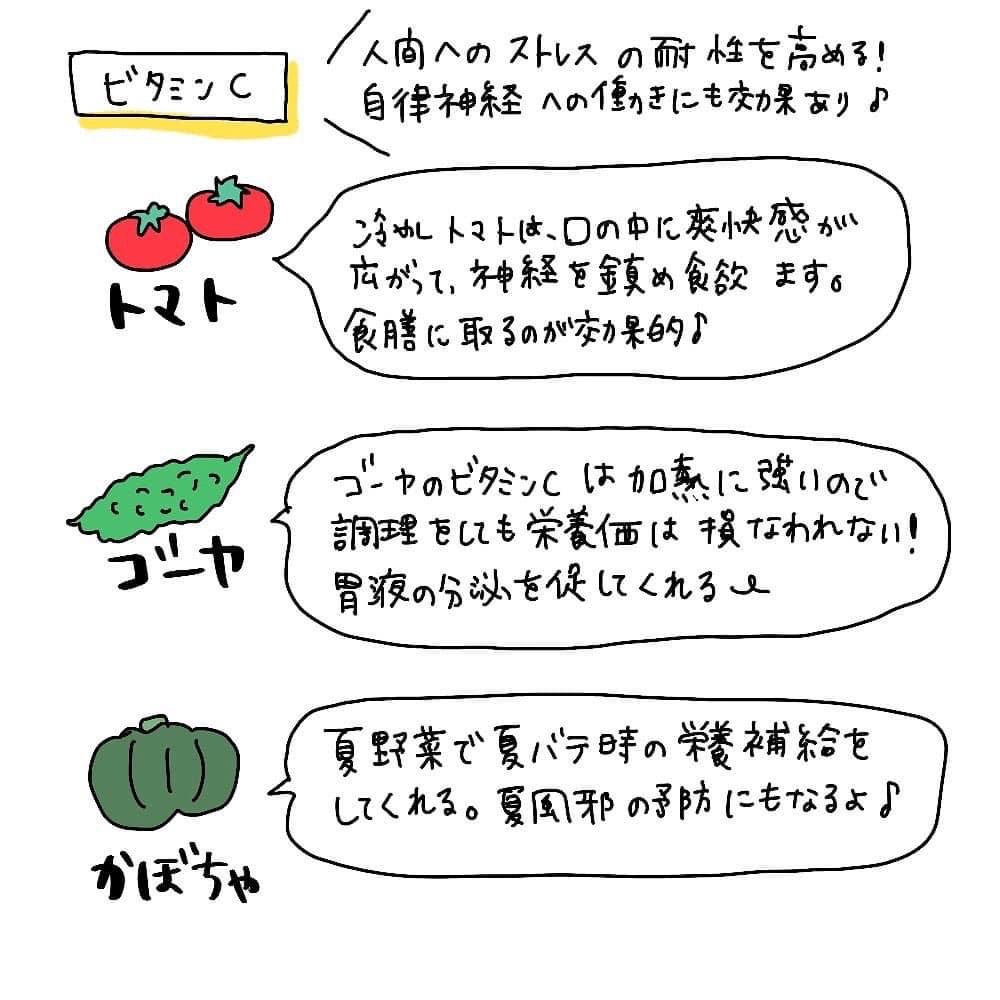 ビタミンC
人間へのストレスの耐性を高める!
自律神経への働きにも効果あり♪
トマト
冷やしトマトは、口の中に爽快感が
広がって、神経を鎮め食欲ます。
食膳に取るのが効果的♪
ゴーヤ
ゴーヤのビタミンCは加熱に強いので
調理をしても栄養価は損なわれない!
胃液の分泌を促してくれる
かぼちゃ
夏野菜で夏バテ時の栄養補給を
してくれる。夏風邪の予防にもなるよ♪